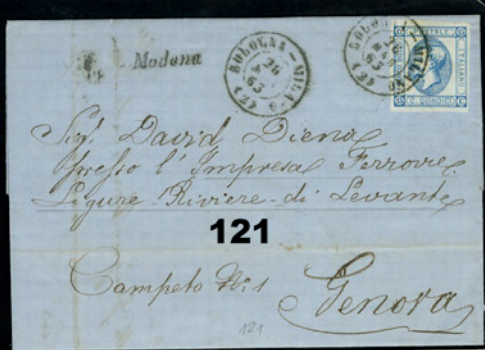 Modena
BOLOGNA - MILANO
(2)
63
BOLOGNA
63
(2)
POSTALE
ITALIANO
C. QUINDICI C.
Sigr David Diena
presso l'Impresa Ferrovie
Ligure Riviere di Levante
121
Campeto No: 1
Genova
121